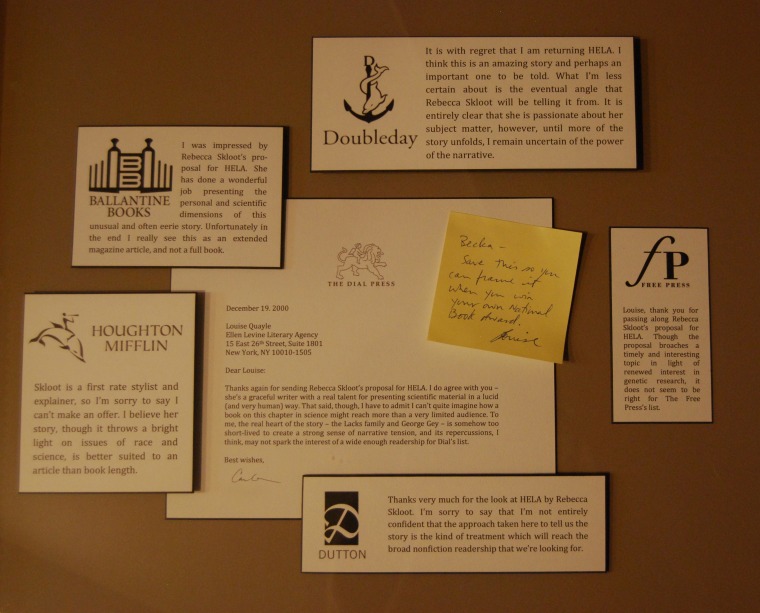 It is with regret that I am returning HELA. I
think this is an amazing story and perhaps an
important one to be told. What I'm less
certain about is the eventual angle that
Rebecca Skloot will be telling it from. It is
entirely clear that she is passionate about her
subject matter, however, until more of the
story unfolds, I remain uncertain of the power
of the narrative.
D
Doubleday
I was impressed by
Rebecca Skloot's pro-
posal for HELA. She
has done a wonderful
job presenting the
personal and scientific
dimensions of this
unusual and often eerie story. Unfortunately in
the end I really see this as an extended
magazine article, and not a full book.
BB
BALLANTINE
BOOKS
THE DIAL PRESS
December 19. 2000
Louise Quayle
Ellen Levine Literary Agency
15 East 26th Street, Suite 1801
New York, NY 10010-1505
Dear Louise:
Thanks again for sending Rebecca Skloot's proposal for HELA. I do agree with you –
she's a graceful writer with a real talent for presenting scientific material in a lucid
(and very human) way. That said, though, I have to admit I can't quite imagine how a
book on this chapter in science might reach more than a very limited audience. To
me, the real heart of the story – the Lacks family and George Gey – is somehow too
short-lived to create a strong sense of narrative tension, and its repercussions, I
think, may not spark the interest of a wide enough readership for Dial's list.
Best wishes,
Becka –
Save this so you
can frame it
when you win
your own National
Book Award.
Louise
fP
FREE PRESS
Louise, thank you for
passing along Rebecca
Skloot's proposal for
HELA. Though the
proposal broaches a
timely and interesting
topic in light of
renewed interest in
genetic research, it
does not seem to be
right for The Free
Press's list.
HOUGHTON
MIFFLIN
Skloot is a first rate stylist and
explainer, so I'm sorry to say I
can't make an offer. I believe her
story, though it throws a bright
light on issues of race and
science, is better suited to an
article than book length.
D
DUTTON
Thanks very much for the look at HELA by Rebecca
Skloot. I'm sorry to say that I'm not entirely
confident that the approach taken here to tell us the
story is the kind of treatment which will reach the
broad nonfiction readership that we're looking for.